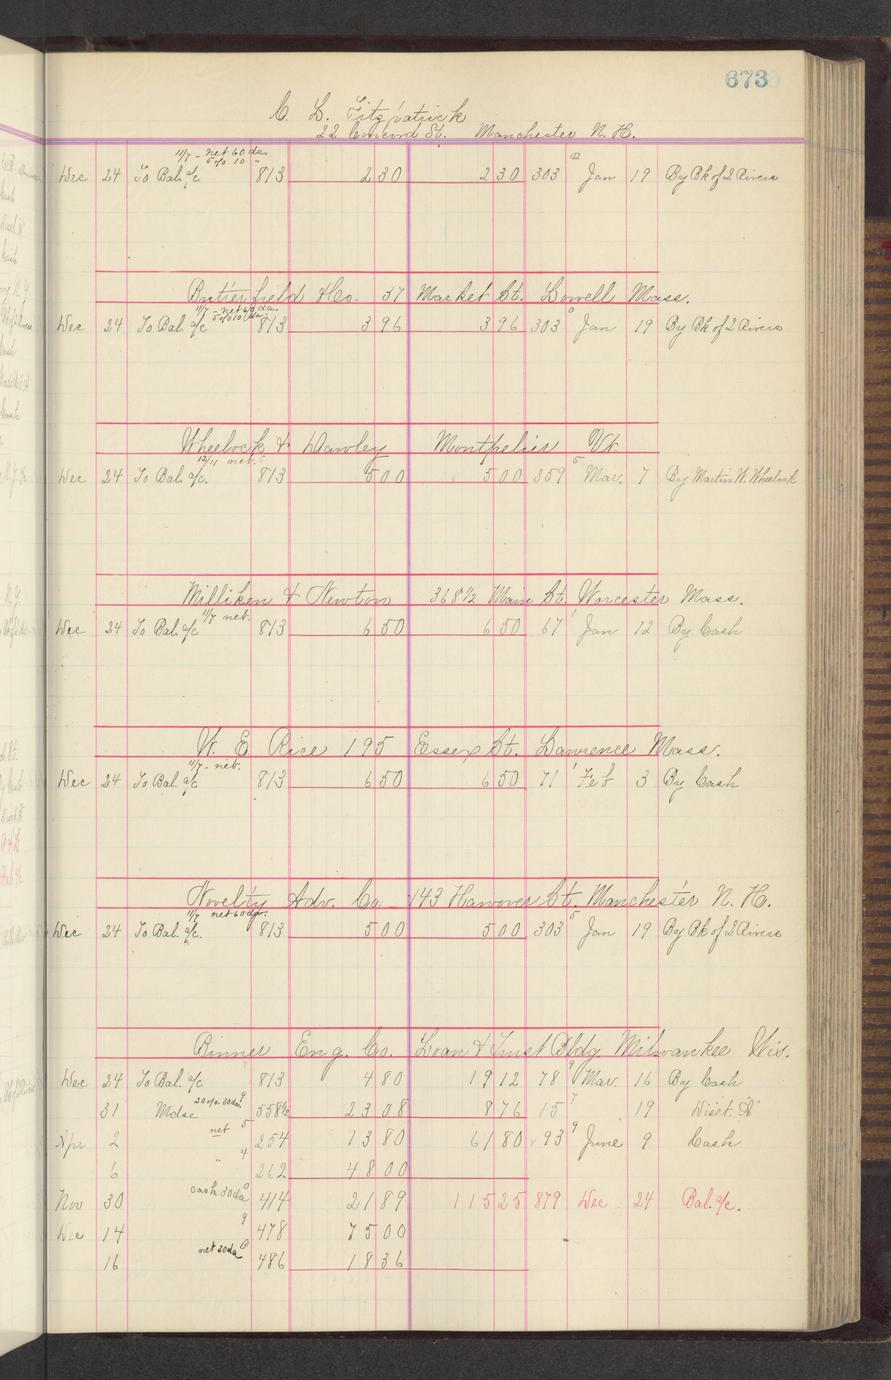 673
C. L. Fitzpatrick
22 Concord St. Manchester N. H.
11/7 - net 60 da.
5% 10 "
Dec 24 To Bal. a/c 813 230 230 303 Jan 19 By Bk of 2 Rivers
Butterfield & Co. 37 Market St. Lowell Mass.
11/7 - net 60 da.
5% 10 da.
Dec 24 To Bal. a/c 813 396 396 303 Jan 19 By Bk of 2 Rivers
Wheelock & Dawley Montpelier Vt
12/11 net.
Dec 24 To Bal. a/c. 813 500 500 359 5 Mar. 7 By Martin W. Wheelock
Milliken & Newton 368 1/2 Main St. Worcester Mass.
11/7 net.
Dec 24 To Bal. a/c 813 650 650 67 1 Jan 12 By Cash
W. E. Rice 195 Essex St. Lawrence Mass.
11/7 - net.
Dec 24 To Bal. a/c 813 650 650 71 1 Feb 3 By Cash
Novelty Adv. Co. 143 Hanover St. Manchester N. H.
11/7 net 60 da.
Dec 24 To Bal. a/c. 813 500 500 303 5 Jan 19 By Bk of 2 Rivers
Binner Eng. Co. Loan & Trust Bldg. Milwaukee Wis.
Dec 24 To Bal. a/c 813 480 1912 78 9 Mar. 16 By Cash
31 Mdse 20% 30 da. 9 558 1/2 2308 876 15 7 19 Disct. "A"
Apr 2 net 5 254 1380 6180 93 9 June 9 Cash
6 " 4 262 4800
Nov 30 cash 30 da 0 414 2189 11525 879 Dec 24 Bal. a/c.
Dec 14 9 478 7500
16 net 30 da 486 1836